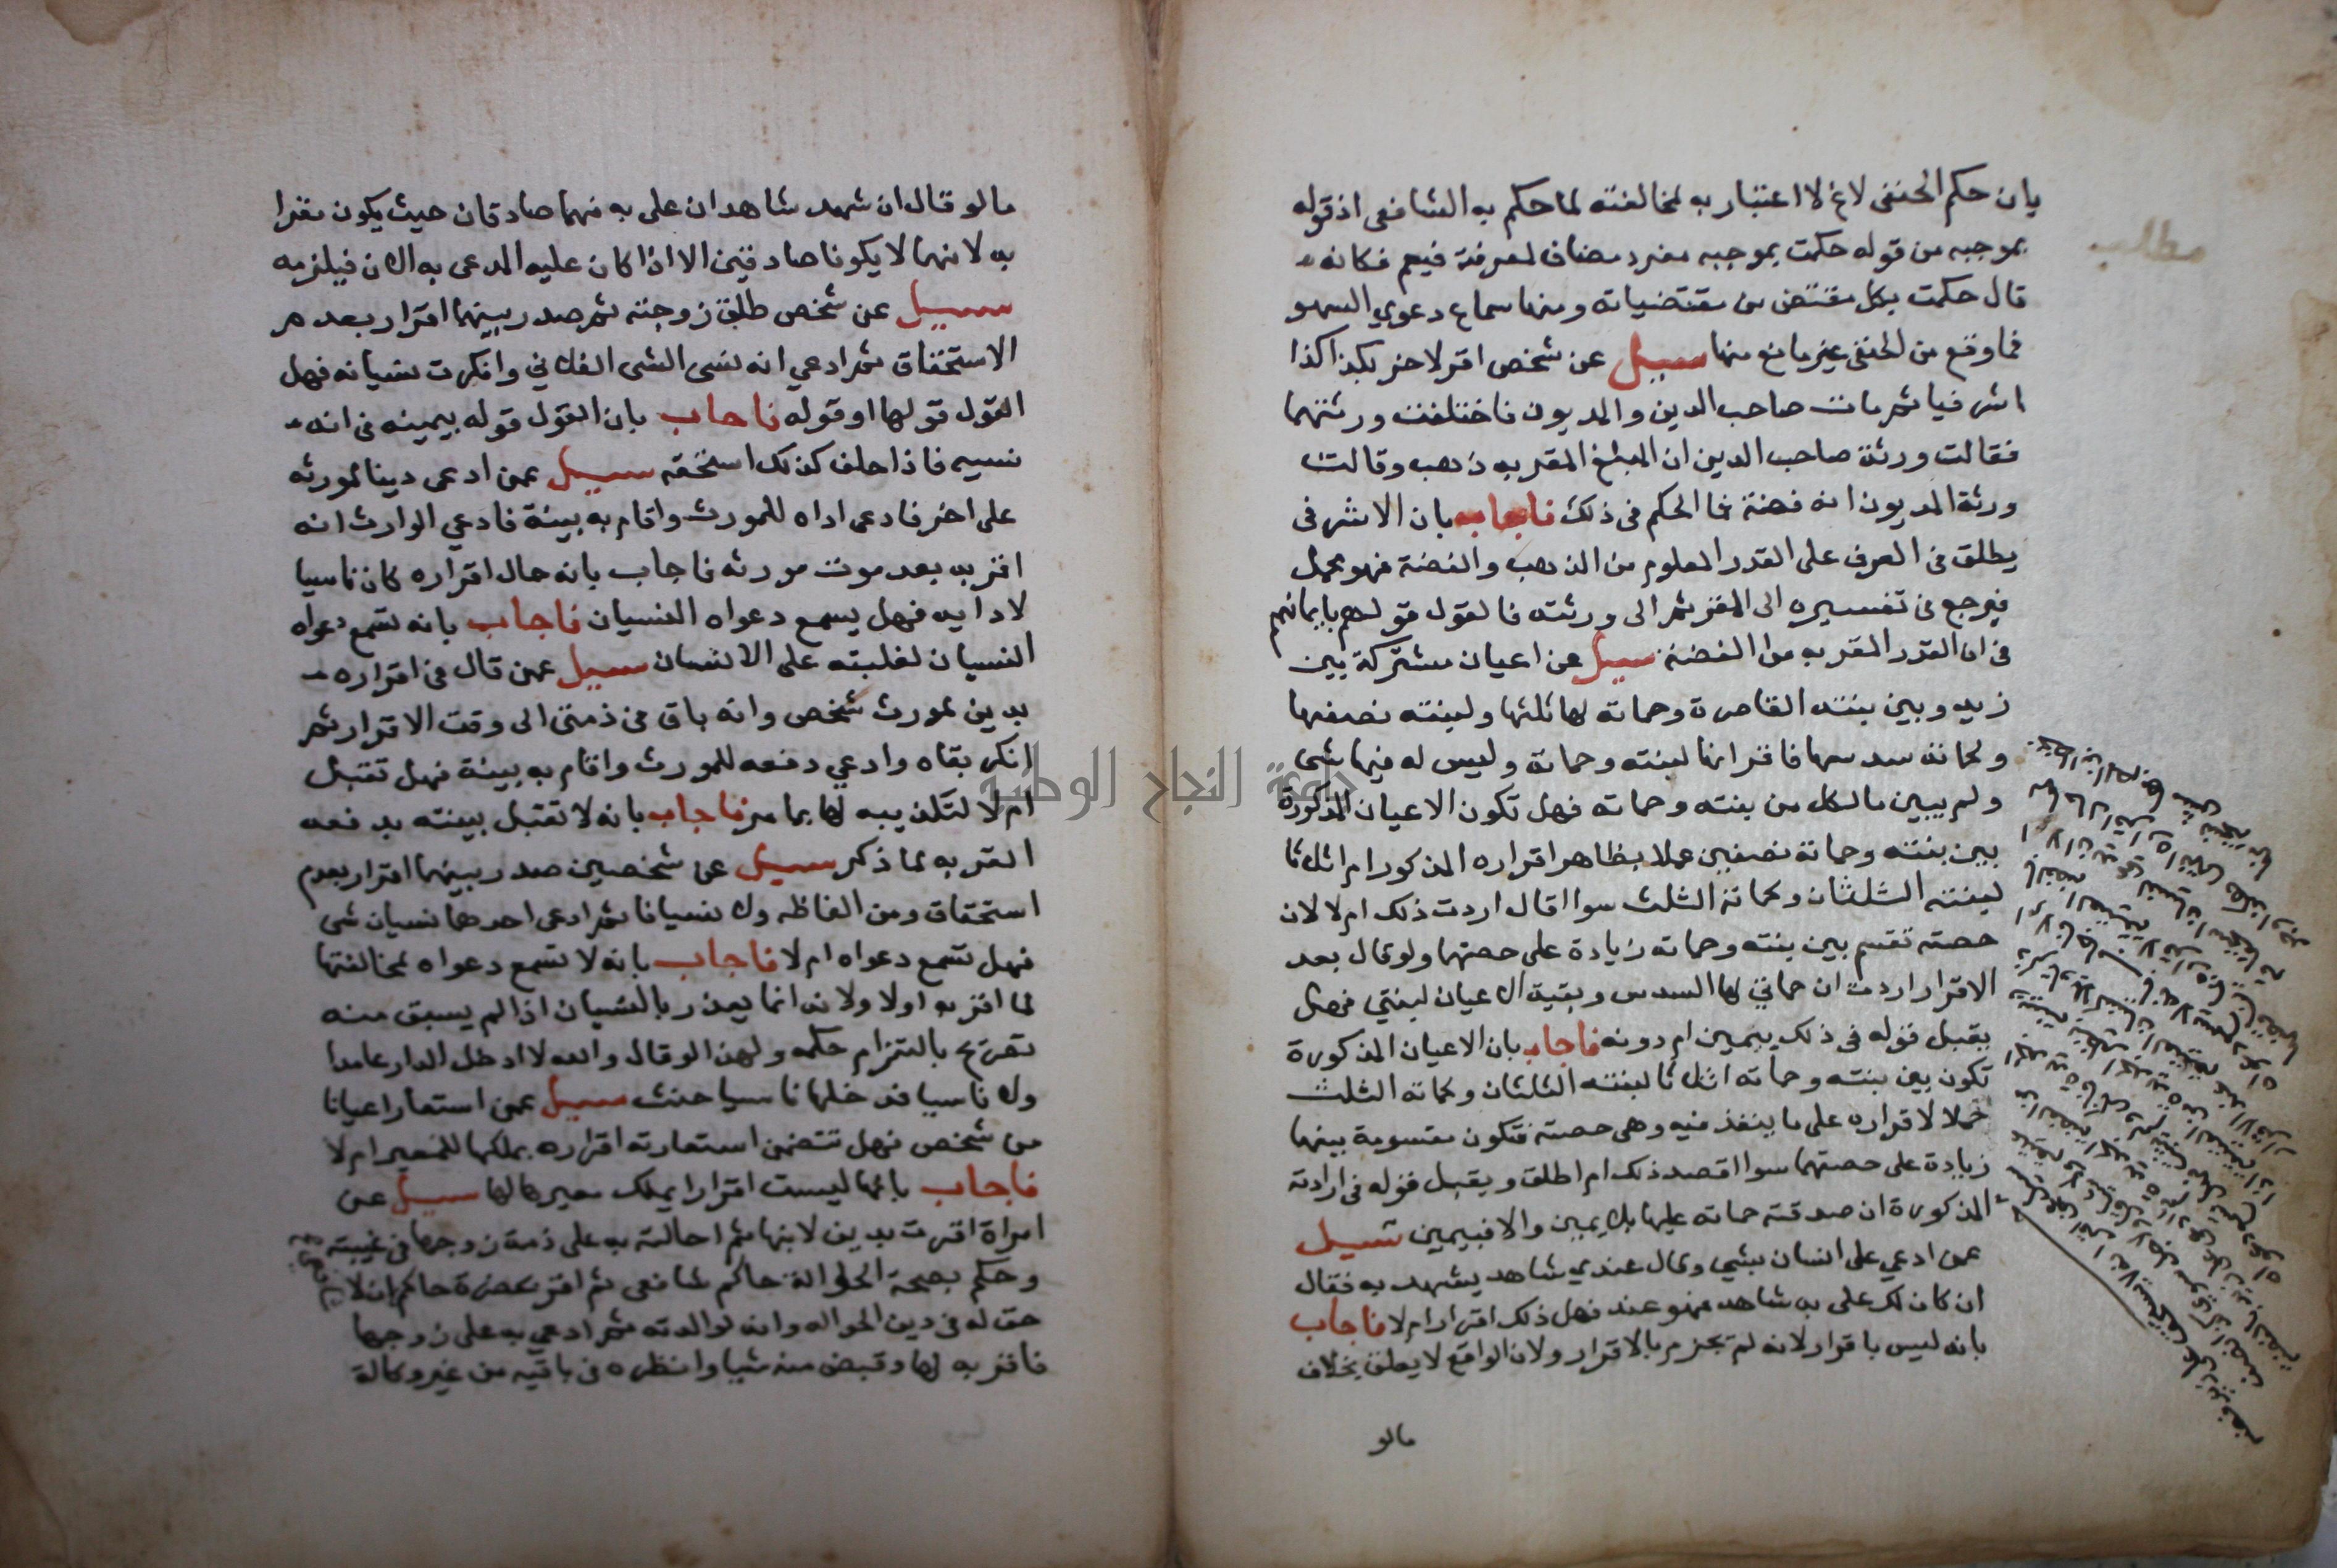 بان حكم الحنفى لاغ لا اعتبار به لمخالفته لما حكم به الشافعى اذ قوله
بموجبه من قوله حكمت بموجبه مفرد مضاف لمعرفة فيعم فكانه
قال حكمت بكل مقتض من مقتضياته ومنها سماع دعوي السهو
فما وقع من الحنفى غير مانع منها سيل عن شخص اقر لاخر بكذا كذا
اشرفيا ثم مات صاحب الدين والمديون فاختلفت ورثتهما
فقالت ورثة صاحب الدين ان المبلغ المقر به ذهب وقالت
ورثة المديون انه فضة فما الحكم فى ذلك فاجاب بان الاشرفى
يطلق فى العرف على القدر المعلوم من الذهب والفضة فهو مجمل
فيرجع فى تفسيره الى المقر ثم الى ورثته فالقول قولهم بايمانهم
فى ان القدر المقر به من الفضة سيل عن اعيان مشتركة بين
زيد وبين بنته القاصرة وحماته لها ثلثها ولبنته نصفها
ولحماته سدسها فاقر انها لبنته وحماته وليس له فيها شى
ولم يبين ما لكل من بنته وحماته فهل تكون الاعيان المذكورة
بين بنته وحماته نصفين عملا بظاهر اقراره المذكور ام اثلاثا
لبنته الثلثان ولحماته الثلث سوا اقال اردت ذلك ام لا لان
حصته تقسم بين بنته وحماته زيادة على حصتهما ولو قال بعد
الاقرار اردت ان حماتي لها السدس وبقية الاعيان لبنتي فهل
يقبل قوله فى ذلك بيمين ام دونه فاجاب بان الاعيان المذكورة
تكون بين بنته وحماته اثلاثا لبنته الثلثان ولحماته الثلث
حملا لاقراره على ما ينفذ فيه وهى حصته فتكون مقسومة بينهما
زيادة على حصتهما سوا اقصد ذلك ام اطلق ويقبل قوله فى ارادته
المذكورة ان صدقته حماته عليها بلا يمين والا فبيمين سيل
عمن ادعي على انسان بشي وقال عندي شاهد يشهد به فقال
ان كان لك على به شاهد فهو عند فهل ذلك اقرار ام لا فاجاب
بانه ليس باقرار لانه لم يجزم بالاقرار ولان الواقع لا يعلق بخلاف
مالو
مطلب
مالو قال ان شهد شاهدان على به فهما صادقان حيث يكون مقرا
به لانهما لا يكونا صادقين الا اذا كان عليه المدعى به الان فيلزمه
سيل عن شخص طلق زوجته ثم صدر بينهما اقرار بعدم
الاستحقاق ثم ادعي انه نسى الشى الفلاني وانكرت نسيانه فهل
القول قولها او قوله فاجاب بان القول قوله بيمينه فى انه
نسيه فاذا حلف كذلك استحقه سيل عمن ادعى دينا لمورثه
على اخر فادعى اداه للمورث واقام به بينة فادعي الوارث انه
اقر به بعد موت مورثه فاجاب بانه حال اقراره كان ناسيا
لادايه فهل يسمع دعواه النسيان فاجاب بانه تسمع دعواه
النسيان لغلبته على الانسان سيل عمن قال فى اقراره
بدين لمورث شخص وانه باق فى ذمتى الى وقت الاقرار ثم
انكر بقاه وادعي دفعه للمورث واقام به بينة فهل تقبل
ام لا لتكذيبه لها بما مر فاجاب بانه لا تقبل بينته بدفعه
المقر به لما ذكر سيل عن شخصين صدر بينهما اقرار بعدم
استحقاق ومن الفاظه ولا نسيانا ثم ادعى احدهما نسيان شى
فهل تسمع دعواه ام لا فاجاب بانه لا تسمع دعواه لمخالفتها
لما اقر به اولا ولانه انما يعذر بالنسيان اذا لم يسبق منه
تصريح بالتزام حكمه ولهذا لو قال والله لا ادخل الدار عامدا
ولا ناسيا فدخلها ناسيا حنث سيل عمن استعار اعيانا
من شخص فهل تتضمن استعارته اقراره بملكها للمعير ام لا
فاجاب بانها ليست اقرارا بملك معيرها لها سيل عن
امراة اقرت بدين لابنها ثم احالته به على ذمة زوجها فى غيبته
وحكم بصحة الحوالة حاكم شافعى ثم اقر بحضرة حاكم ان لا
حق له فى دين الحواله وانه لوالدته ثم ادعي به على زوجها
فاقر به لها وقبض منه شيا وانظره فى باقيه من غير وكالة
جامعة النجاح الوطنية